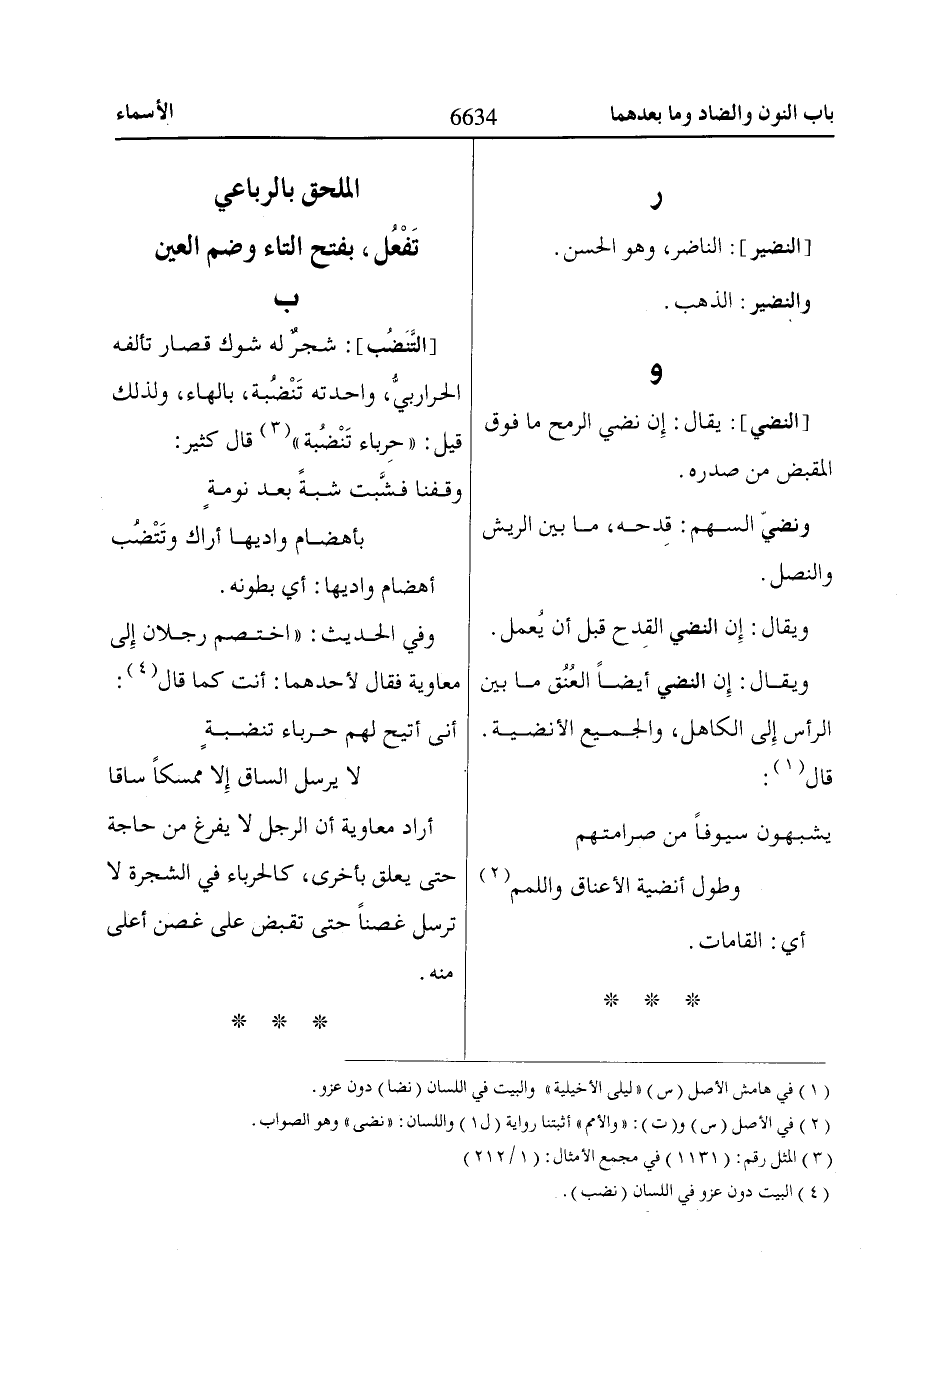 باب النون والضاد وما بعدهما
6634
الأسماء
ر
[النضير]: الناضر، وهو الحسن.
والنضير: الذهب.
و
[النضي]: يقال: إن نضي الرمح ما فوق
المقبض من صدره.
ونضيّ السهم: قدحه، ما بين الريش
والنصل.
ويقال: إن النضي القدح قبل أن يُعمل.
ويقال: إن النضي أيضاً العُنُق ما بين
الرأس إلى الكاهل، والجميع الأنضية.
قال(١):
يشبهون سيوفاً من صرامتهم
وطول أنضية الأعناق واللمم(٢)
أي: القامات.
* * *
الملحق بالرباعي
تَفْعُل، بفتح التاء وضم العين
ب
[التَّنَضُب]: شجرٌ له شوك قصار تألفه
الحرابيُّ، واحدته تَنْضُبة، بالهاء، ولذلك
قيل: «حرباء تَنْضُبة»(٣) قال كثير:
وقفنا فشَّبت شبةً بعد نومةٍ
بأهضام واديها أراك وتَتْضُب
أهضام واديها: أي بطونه.
وفي الحديث: «اختصم رجلان إلى
معاوية فقال لأحدهما: أنت كما قال(٤):
أنى أتيح لهم حرباء تنضبةٍ
لا يرسل الساق إلا ممسكاً ساقا
أراد معاوية أن الرجل لا يفرغ من حاجة
حتى يعلق بأخرى، كالحرباء في الشجرة لا
ترسل غصناً حتى تقبض على غصن أعلى
منه.
* * *
(١) في هامش الأصل (س) «ليلى الأخيلية» والبيت في اللسان (نضا) دون عزو.
(٢) في الأصل (س) و(ت): «والأمم» أثبتنا رواية (ل١) واللسان: «نضى» وهو الصواب.
(٣) المثل رقم: (١١٣١) في مجمع الأمثال: (١/٢١٢)
(٤) البيت دون عزو في اللسان (نضب).